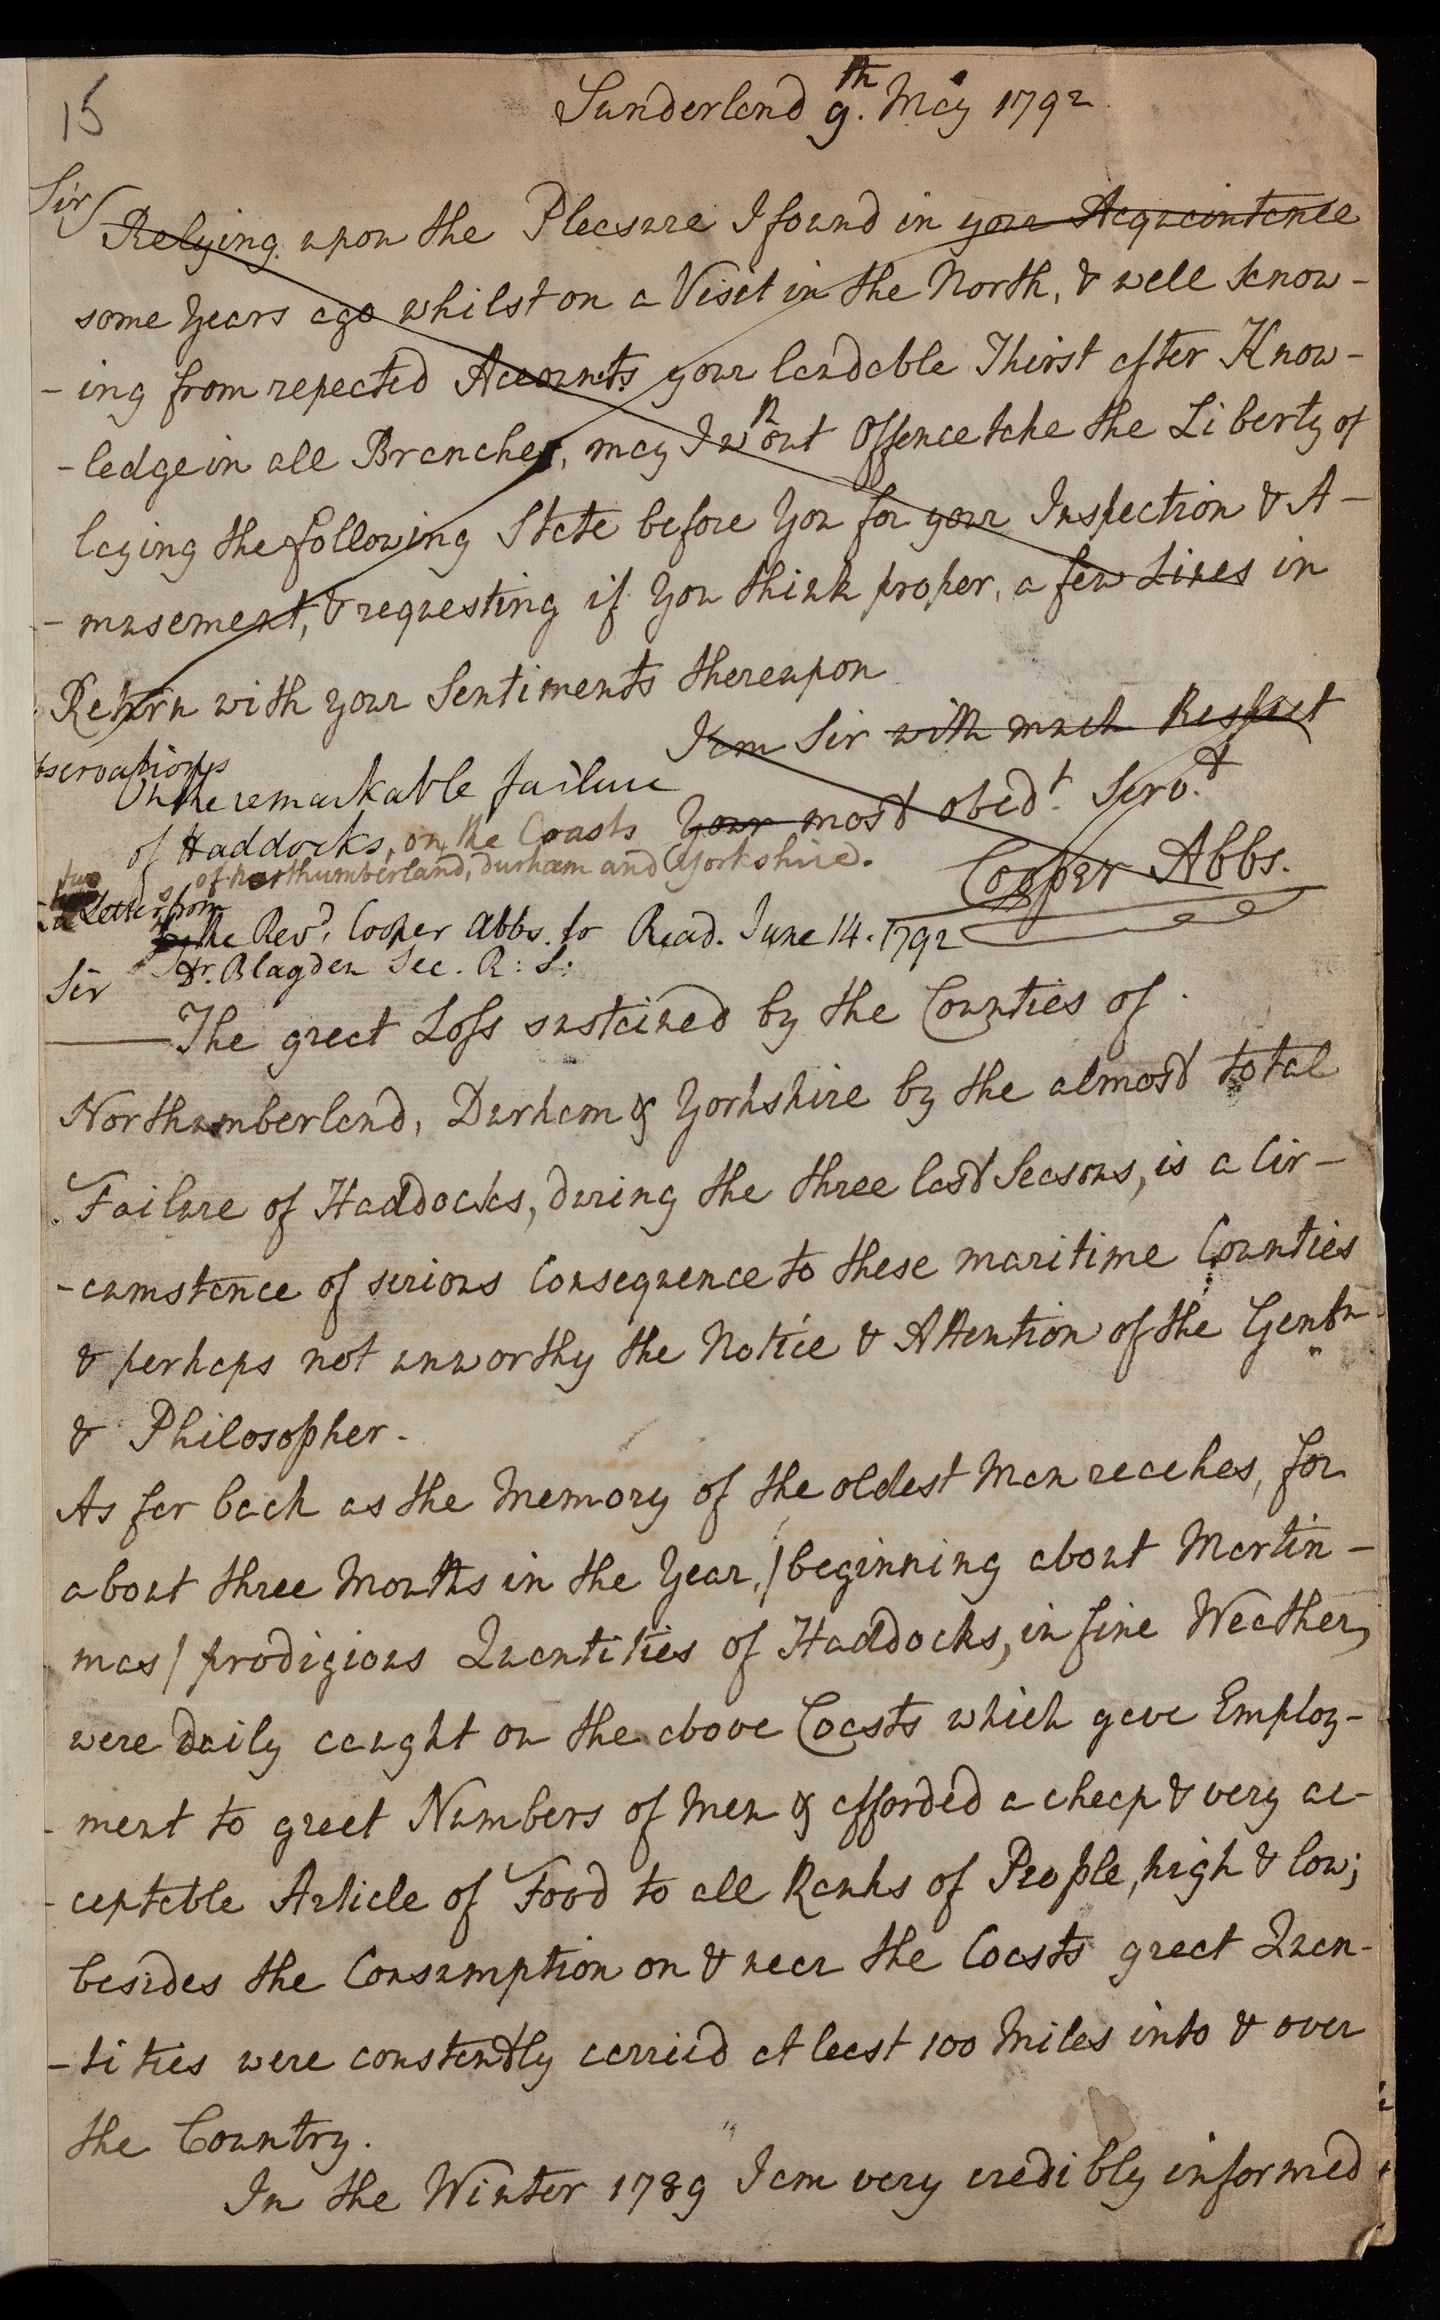 15
Sunderland 9th. May 1792
Sir
Relying upon the Pleasure I found in your Acquaintance
some Years ago whilst on a Visit in the North, & well know-
-ing from repeated Accounts your laudable Thirst after Know-
-ledge in all Branches, may I wth.out Offence take the Liberty of
laying the following State before You for your Inspection & A-
-musement, & requesting if You think proper, a few Lines in
Return with your Sentiments thereupon
I am Sir with much Respect
Your most obedt. Servt.
Cooper Abbs.
bservations
On the remarkable failure
of Haddocks, on the Coasts
of Northumberland, Durham and Yorkshire.
two
Letters from
the Revd. Cooper Abbs. to Read. June 14. 1792
Dr. Blagden Sec. R: S:
Sir
The great Loss sustained by the Counties of
Northumberland, Durham & Yorkshire by the almost total
Failure of Haddocks, during the three last Seasons, is a Cir-
-cumstance of serious Consequence to these maritime Counties
& perhaps not unworthy the Notice & Attention of the Gentn
& Philosopher.
As far back as the Memory of the oldest Man reaches, for
about three Months in the Year, / beginning about Martin-
mas / prodigious Quantities of Haddocks, in fine Weather,
were daily caught on the above Coasts which gave Employ-
-ment to great Numbers of Men & afforded a cheap & very ac-
-ceptable Article of Food to all Ranks of People, high & low;
besides the Consumption on & near the Coasts great Quan-
-tities were constantly carried at least 100 Miles into & over
the Country.
In the Winter 1789 I am very credibly informed